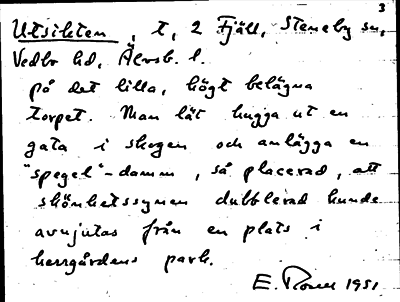 3
Utsikten, t, 2 Fjäll, Steneby sn,
Vedbo hd, Älvsb. l.
på det lilla, högt belägna
torpet. Man lät hugga ut en
gata i skogen och anlägga en
"spegel"-damm, så placerad, att
skönhetssynen dubblerad kunde
avnjutas från en plats i
herrgårdens park.
E. 1951